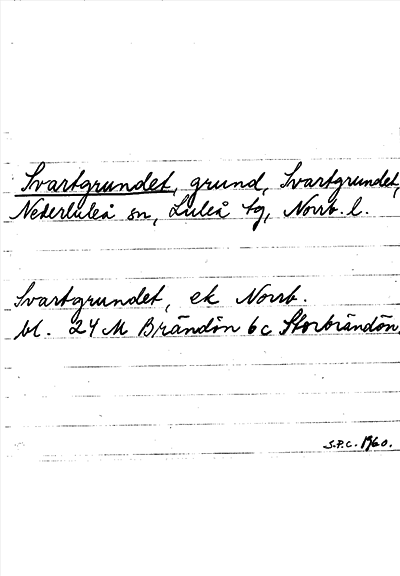 Svartgrundet, grund, Svartgrundet,
Nederluleå sn, Luleå tg, Norrb. l.
Svartgrundet, ek Norrb.
bl. 24 M Brändön 6c Storbrändön.
S.P.C. 1960.